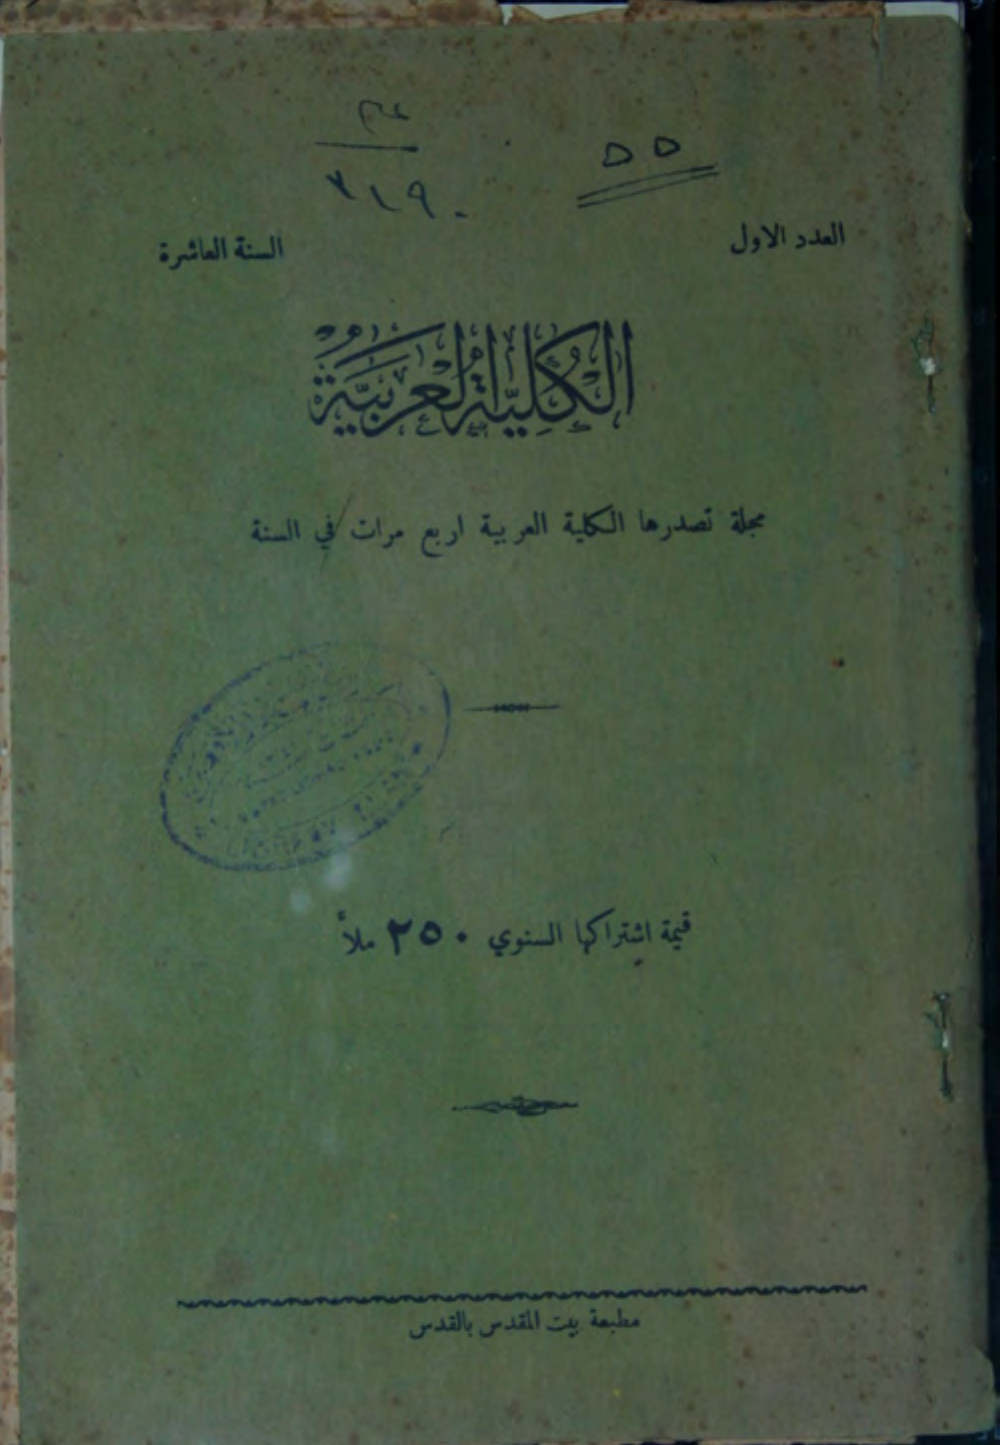 ٥٥
٣١٩٠
العدد الاول
السنة العاشرة
الكلية العربية
مجلة تصدرها الكلية العربية اربع مرات في السنة
قيمة اشتراكها السنوي ٢٥٠ ملاً
مطبعة بيت المقدس بالقدس